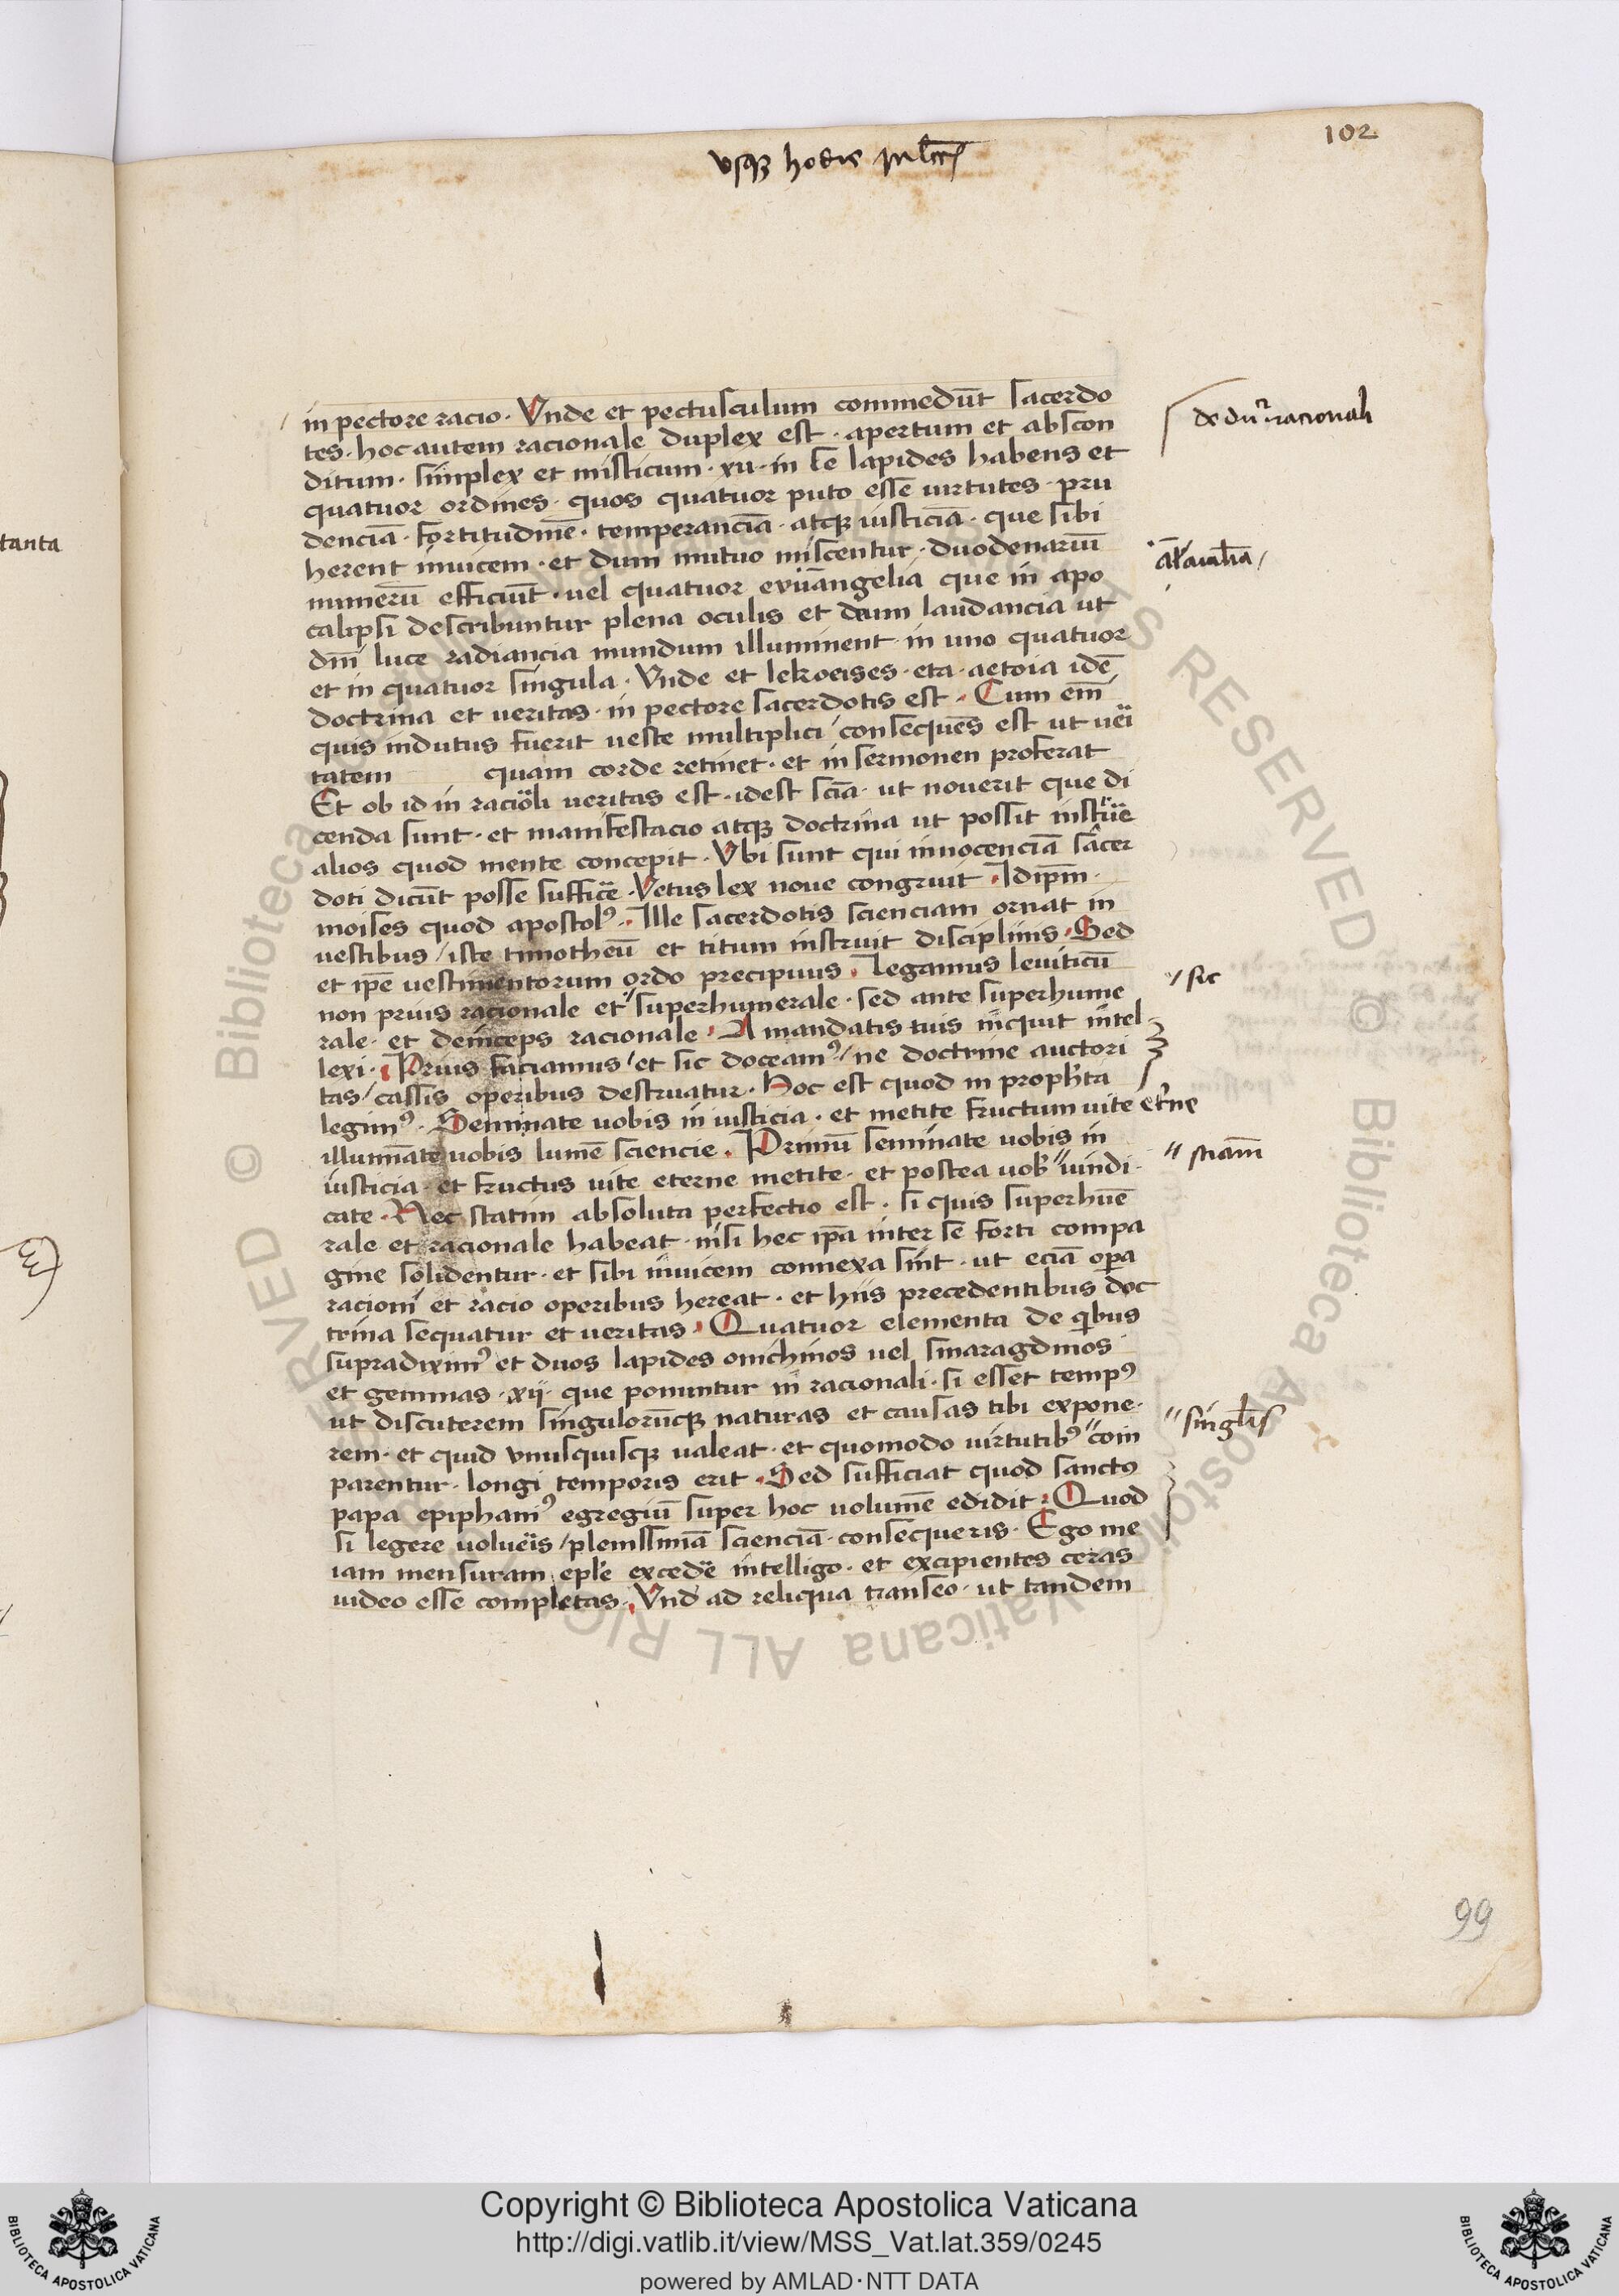 102
vsqꝫ hodie
in pectore racio. Vnde et pectusculum commedūt sacerdo
tes. hoc autem racionale duplex est. apertum et abscon
ditum. simplex et misticum. xii. in se lapides habens et
quatuor ordines. quos quatuor puto esse uirtutes. pru
denciā. fortitudinē. temperanciā. atqꝫ iusticiā. que sibi
herent inuicem. et dum mutuo miscentur. duodenariū
numerū efficiūt. uel quatuor euuangelia que in apo
calipsi describuntur plena oculis et deum laudancia ut
dn̄i luce radiancia mundum illuminent. in uno quatuor
et in quatuor singula. Vnde et lekoeises. eta. aetoia idē
doctrina et ueritas. in pectore sacerdotis est. Cum em̄
quis indutus fuerit ueste multiplici / consequēs est ut ueri
tatem quam corde retinet. et in sermonen proferat
Et ob id in racioli ueritas est. idest scīa. ut nouerit que di
cenda sunt. et manifestacio atqꝫ doctrina ut possit instrue
alios quod mente concepit. Vbi sunt qui innocenciā sacer
doti dicūt posse suffice. Vetus lex noue congruit. Idip̄m.
moises quod apostolꝰ. Ille sacerdotis scienciam ornat in
uestibus / iste timotheū et titum instruit disciplinis. Sed
et ip̄e uestimentorum ordo precipuus. Legamus leuiticū
non prius racionale et " superhumerale. sed ante superhume
rale. et deinceps racionale. A mandatis tuis inquit intel
lexi. Prius faciamus / et sic doceamꝰ / ne doctrine auctori
tas / cassis operibus destruatur. Hoc est quod in proph̄ta
legimꝰ. Seminate uobis in iusticia. et metite fructum uite et̄ne
illumināte uobis lumē sciencie. Primū seminate uobis in
iusticia. et fructus uite eterne metite. et postea uob̄ " uindi
cate. Nec statim absoluta perfectio est. si quis superhūe
rale et racionale habeat. nisi hec ip̄a inter se forti compa
gine solidentur. et sibi inuicem connexa sint. ut eciā op̄a
racioni et racio operibus hereat. et hiis precedentibus doc
trina sequatur et ueritas. Quatuor elementa de qibus
supradiximꝰ et duos lapides onichinos uel smaragdinos
et gemmas. xij. que ponuntur in racionali. si esset tempꝰ
ut discuterem singulorūqꝫ naturas et causas tibi expone.
rem. et quid vnusquisqꝫ ualeat. et quomodo uirtutibꝰ " com
parentur. longi temporis erit. Sed sufficiat quod sanctꝰ
papa epiphaniꝰ egregiū super hoc uolumē edidit. Quod
si legere uolueis / plenissimā scienciā. consequeris. Ego me
iam mensuram epl̄e excedē intelligo. et excipientes ceras
uideo esse completas. Vnd̄ ad reliqua transeo. ut tandem
tanta
" sic
" sciam̄
" singl̄is
99
Copyright © Biblioteca Apostolica Vaticana
http://digi.vatlib.it/view/MSS_Vat.lat.359/0245
powered by AMLAD·NTT DATA
BIBLIOTECA APOSTOLICA VATICANA
BIBLIOTECA APOSTOLICA VATICANA